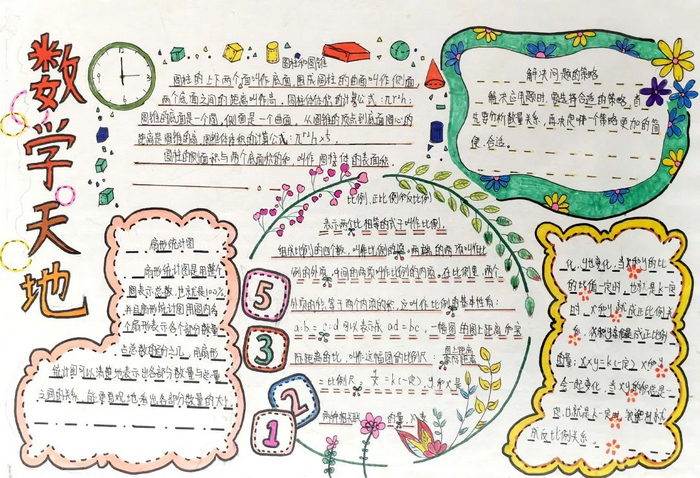 数学天地
圆柱和圆锥
圆柱的上下两个面叫作底面,围成圆柱的曲面叫作侧面,
两个底面之间的距离叫作高,圆柱体体积的计算公式:πr²h;
圆锥的底面是一个圆,侧面是一个曲面,从圆锥的顶点到底面圆心的
距离是圆锥的高,圆锥体体积的计算公式:πr²h×⅓,
圆柱的侧面积与两个底面积的和,叫作圆柱体的表面积
解决问题的策略
解决应用题时,要选择合适的策略,首
先要分析数量关系,再决定哪个策略更加的简
便、合适。
扇形统计图
扇形统计图是用整个
圆表示总数,也就是100%
并且扇形统计图用圆内各
个扇形表示各个部分数量
占总数的百分之几,用扇形
统计图可以清楚地表示出各部分数量与总量
之间的关系,能更直观地看出各部分数量的大小
5
3
2
1
比例、正比例和反比例
表示两个比相等的式子叫作比例,
组成比例的四个数,叫作比例的项,两端的两项叫作比
例的外项,中间的两项叫作比例的内项,在比例里,两个
外项的积等于两个内项的积,这叫作比例的基本性质:
a:b=c:d可以表示成ad=bc,一幅图的图上距离和实
际距离的比,叫作这幅图的比例尺,图上距离:实际距离
=比例尺,=k(一定),y和x是
两种相关联的量,
化,y也变化,当x和y的比
的比值一定时,也就是k一定
时,x和y就成正比例
关系,
量;x×y=k(一定),x和y
会一起变化,当x和y的积总是一
定,也就是k一定时,
成反比例关系。